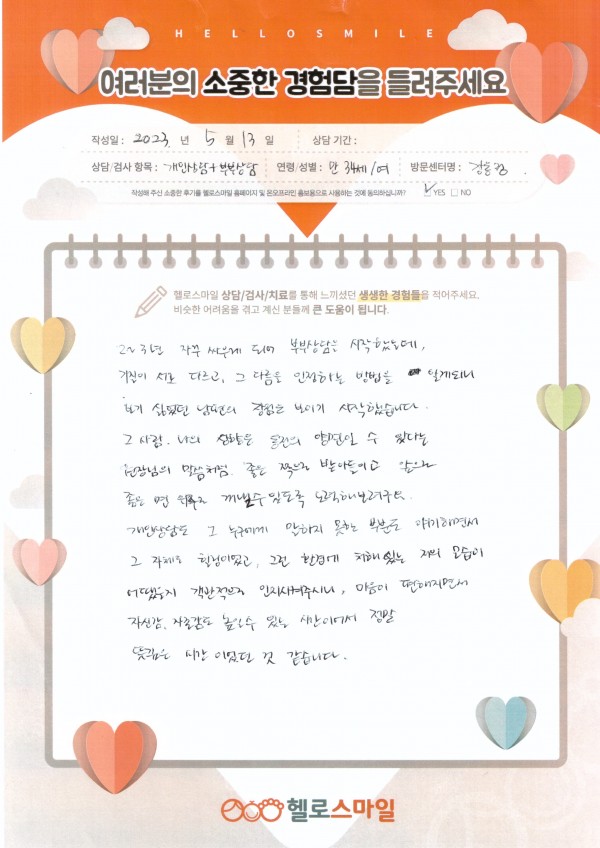 HELLOSMILE
여러분의 소중한 경험담을 들려주세요
작성일 : 2023. 년 5 월 13 일 상담 기간 :
상담/검사 항목 : 개인상담+부부상담 연령/성별 : 만 34세/여 방문센터명 :
작성해 주신 소중한 후기를 헬로스마일 홈페이지 및 온오프라인 홍보용으로 사용하는 것에 동의하십니까? ☑ YES ☐ NO
헬로스마일 상담/검사/치료를 통해 느끼셨던 생생한 경험들을 적어주세요.
비슷한 어려움을 겪고 계신 분들께 큰 도움이 됩니다.
2~3년 자꾸 싸우게 되어 부부상담을 시작했는데,
기질이 서로 다르고, 그 다름을 인정하는 방법을 알게되니
보기 싫었던 남편의 장점은 보이기 시작했습니다.
그 사람, 나의 성향은 동전의 양면일 수 있다는
원장님의 말씀처럼, 좋은 쪽으로 받아들이고 앞으로
좋은 면 위주로 꺼낼수있도록 노력해보려구요.
개인상담도 그 누구에게 말하지 못하는 부분도 얘기하면서
그 자체로 힐링이었고, 그런 환경에 처해 있는 저의 모습이
어땠는지 객관적으로 인지시켜주시니, 마음이 편해지면서
자신감, 자존감도 높일수 있는 시간이어서 정말
뜻깊은 시간 이었던 것 같습니다.
헬로스마일